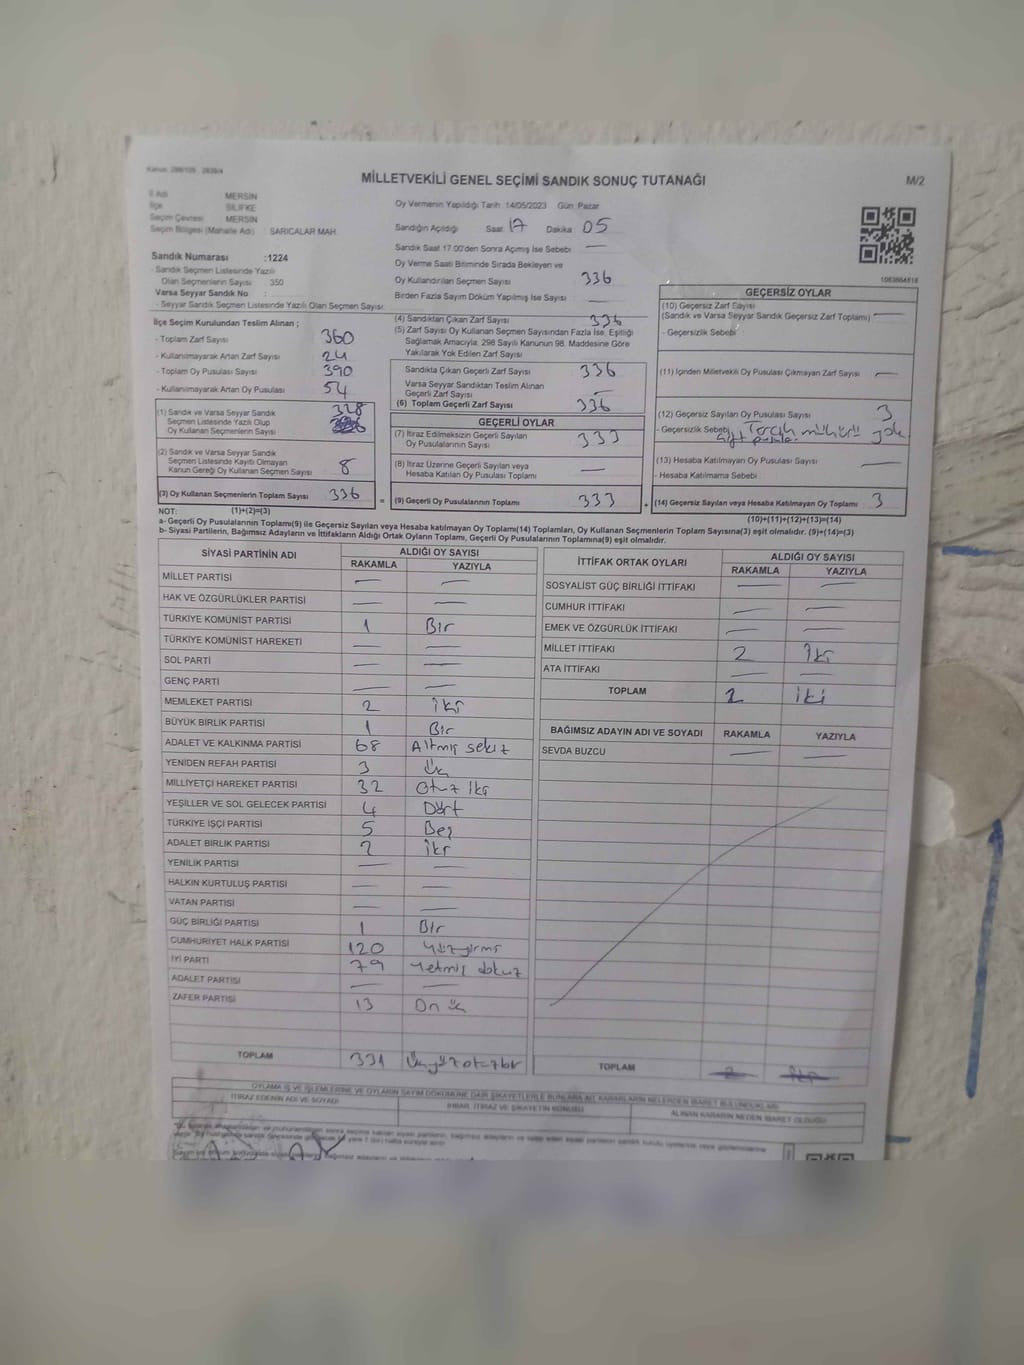 MİLLETVEKİLİ GENEL SEÇİMİ SANDIK SONUÇ TUTANAĞI
M/2
İl Adı MERSİN
İlçe SİLİFKE
Seçim Çevresi MERSİN
Seçim Bölgesi (Mahalle Adı) SARICALAR MAH.
Sandık Numarası :1224
- Sandık Seçmen Listesinde Yazılı
Olan Seçmenlerin Sayısı 350
Varsa Seyyar Sandık No :
- Seyyar Sandık Seçmen Listesinde Yazılı Olan Seçmen Sayısı:
Oy Vermenin Yapıldığı Tarih 14/05/2023 Gün Pazar
Sandığın Açıldığı Saat 17 Dakika 05
Sandık Saat 17.00'den Sonra Açımış İse Sebebi —
Oy Verme Saati Bitiminde Sırada Bekleyen ve
Oy Kullandırılan Seçmen Sayısı 336
Birden Fazla Sayım Döküm Yapılmış İse Sayısı —
İlçe Seçim Kurulundan Teslim Alınan ;
- Toplam Zarf Sayısı 360
- Kullanılmayarak Artan Zarf Sayısı 24
- Toplam Oy Pusulası Sayısı 390
- Kullanılmayarak Artan Oy Pusulası 54
(1) Sandık ve Varsa Seyyar Sandık
Seçmen Listesinde Yazılı Olup
Oy Kullanan Seçmenlerin Sayısı 328
(2) Sandık ve Varsa Seyyar Sandık
Seçmen Listesinde Kayıtlı Olmayan
Kanun Gereği Oy Kullanan Seçmen Sayısı 8
(3) Oy Kullanan Seçmenlerin Toplam Sayısı 336
(4) Sandıktan Çıkan Zarf Sayısı 336
(5) Zarf Sayısı Oy Kullanan Seçmen Sayısından Fazla İse, Eşitliği
Sağlamak Amacıyla, 298 Sayılı Kanunun 98. Maddesine Göre
Yakılarak Yok Edilen Zarf Sayısı
Sandıkta Çıkan Geçerli Zarf Sayısı 336
Varsa Seyyar Sandıktan Teslim Alınan
Geçerli Zarf Sayısı —
(6) Toplam Geçerli Zarf Sayısı 336
GEÇERLİ OYLAR
(7) İtiraz Edilmeksizin Geçerli Sayılan
Oy Pusulalarının Sayısı 333
(8) İtiraz Üzerine Geçerli Sayılan veya
Hesaba Katılan Oy Pusulası Toplamı —
(9) Geçerli Oy Pusulalarının Toplamı 333
GEÇERSİZ OYLAR
(10) Geçersiz Zarf Sayısı
(Sandık ve Varsa Seyyar Sandık Geçersiz Zarf Toplamı) —
- Geçersizlik Sebebi
(11) İçinden Milletvekili Oy Pusulası Çıkmayan Zarf Sayısı —
(12) Geçersiz Sayılan Oy Pusulası Sayısı 3
- Geçersizlik Sebebi Tercih mühürü yok
çift pusula
(13) Hesaba Katılmayan Oy Pusulası Sayısı —
Hesaba Katılmama Sebebi
(14) Geçersiz Sayılan veya Hesaba Katılmayan Oy Toplamı 3
NOT: (1)+(2)=(3)
(10)+(11)+(12)+(13)=(14)
a- Geçerli Oy Pusulalarının Toplamı(9) ile Geçersiz Sayılan veya Hesaba Katılmayan Oy Toplamı(14) Toplamları, Oy Kullanan Seçmenlerin Toplam Sayısına(3) eşit olmalıdır. (9)+(14)=(3)
b- Siyasi Partilerin, Bağımsız Adayların ve İttifakların Aldığı Ortak Oyların Toplamı, Geçerli Oy Pusulalarının Toplamına(9) eşit olmalıdır.
SİYASİ PARTİNİN ADI ALDIĞI OY SAYISI
RAKAMLA YAZIYLA
MİLLET PARTİSİ — —
HAK VE ÖZGÜRLÜKLER PARTİSİ — —
TÜRKİYE KOMÜNİST PARTİSİ 1 Bir
TÜRKİYE KOMÜNİST HAREKETİ — —
SOL PARTİ — —
GENÇ PARTİ — —
MEMLEKET PARTİSİ 2 iki
BÜYÜK BİRLİK PARTİSİ 1 Bir
ADALET VE KALKINMA PARTİSİ 68 Altmış sekiz
YENİDEN REFAH PARTİSİ 3 üç
MİLLİYETÇİ HAREKET PARTİSİ 32 otuz iki
YEŞİLLER VE SOL GELECEK PARTİSİ 4 Dört
TÜRKİYE İŞÇİ PARTİSİ 5 Beş
ADALET BİRLİK PARTİSİ 2 iki
YENİLİK PARTİSİ — —
HALKIN KURTULUŞ PARTİSİ — —
VATAN PARTİSİ — —
GÜÇ BİRLİĞİ PARTİSİ 1 Bir
CUMHURİYET HALK PARTİSİ 120 Yüz yirmi
İYİ PARTİ 79 Yetmiş dokuz
ADALET PARTİSİ — —
ZAFER PARTİSİ 13 On üç
TOPLAM 331 Üçyüz otuzbir
İTTİFAK ORTAK OYLARI ALDIĞI OY SAYISI
RAKAMLA YAZIYLA
SOSYALİST GÜÇ BİRLİĞİ İTTİFAKI — —
CUMHUR İTTİFAKI — —
EMEK VE ÖZGÜRLÜK İTTİFAKI — —
MİLLET İTTİFAKI 2 İki
ATA İTTİFAKI — —
TOPLAM 2 iki
BAĞIMSIZ ADAYIN ADI VE SOYADI RAKAMLA YAZIYLA
SEVDA BUZCU — —
TOPLAM
OYLAMA İŞ VE İŞLEMLERİNE VE OYLARIN SAYIM DÖKÜMÜNE DAİR ŞİKAYETLERLE BUNLARA AİT KARARLARIN NELERDEN İBARET BULUNDUKLARI
İTİRAZ EDENİN ADI VE SOYADI
İHBAR, İTİRAZ VE ŞİKAYETİN KONUSU
ALINAN KARARIN NEDEN İBARET OLDUĞU